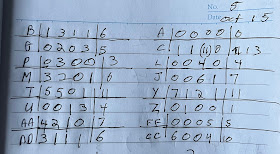 No. 5
Date oct 15
B | 3 1 1 | 6
G 0 2 0 3 | 5
P 0 3 0 0 | 3
M 3 2 0 1 | 6
T 5 5 0 1 | 11
U 0 0 1 3 | 4
AA 4 2 1 0 | 7
DD 3 1 1 1 | 6
A | 0 0 0 0 | 0
C | 1 1 | 13
L 0 0 4 0 | 4
J 0 0 6 1 | 7
Y 7 1 2 1 | 11
Z 0 1 0 0 | 1
FF 0 0 0 5 | 5
CC 6 0 0 4 | 10